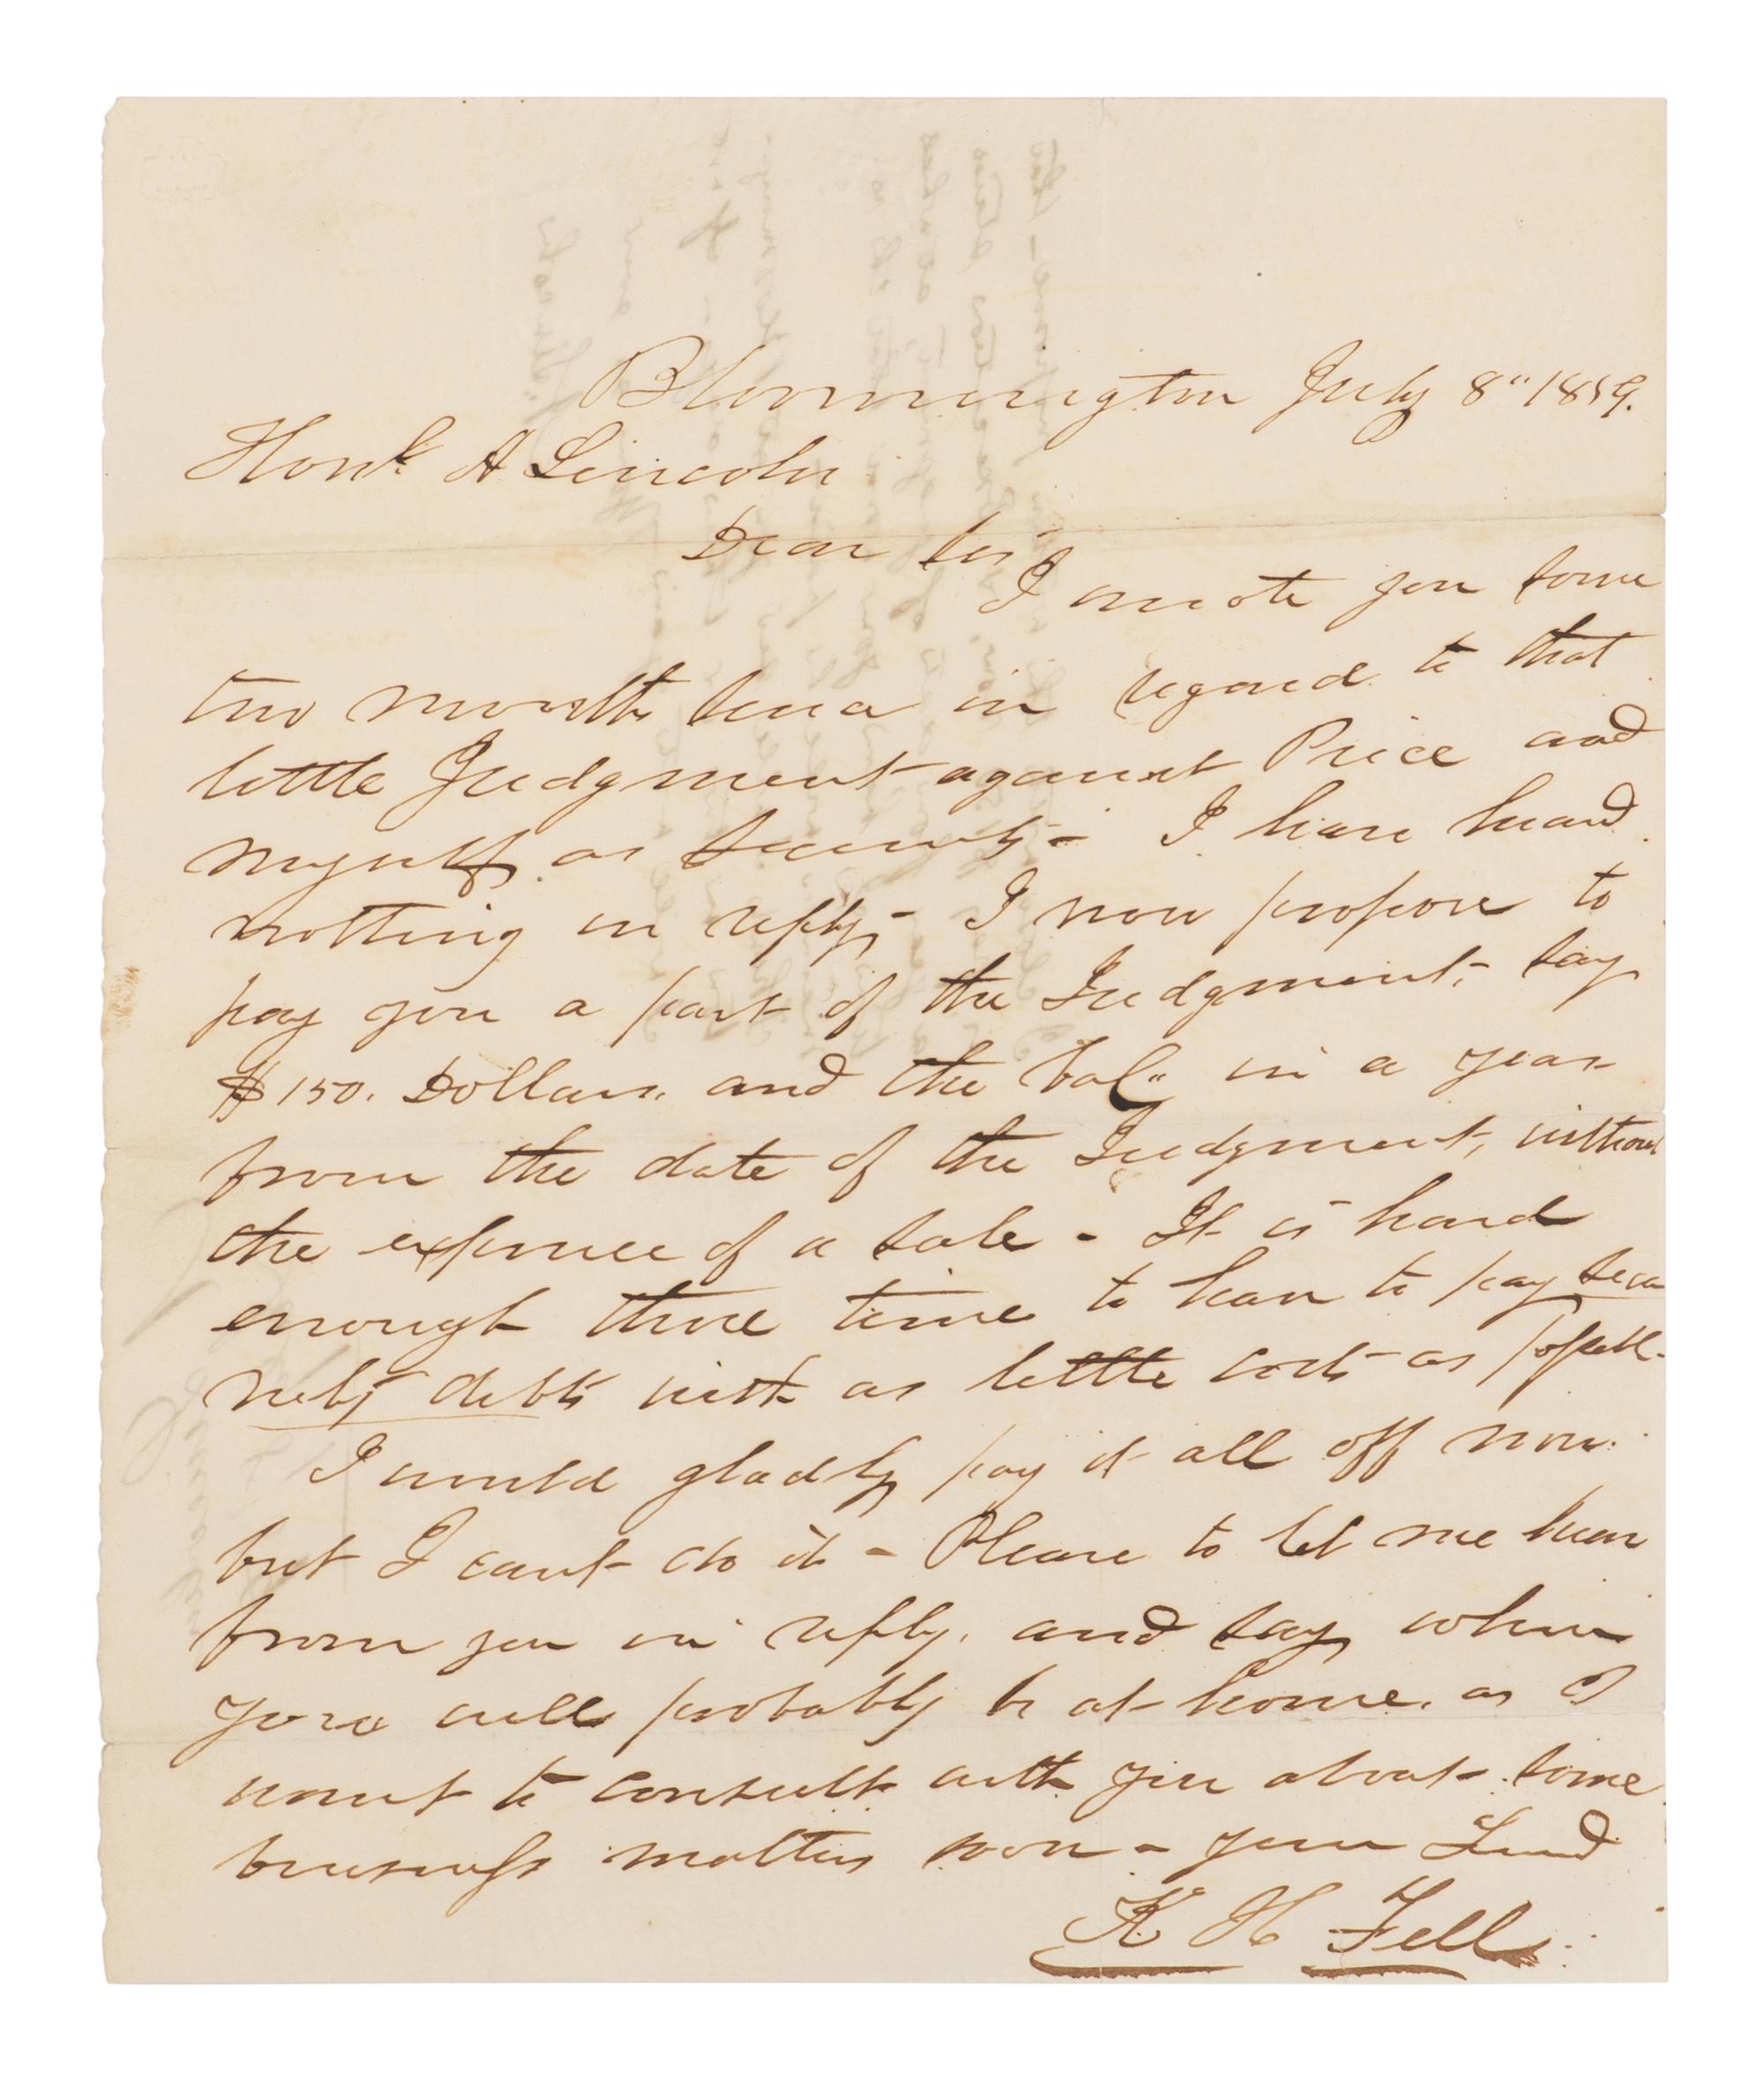 Bloomington July 8" 1859.
Honl. A Lincoln
Dear Sir
I wrote you some
two months since in regard to that
little Judgment against Price and
myself as Security - I have heard
nothing in reply - I now propose to
pay you a part of the Judgment, say
$150. Dollars, and the bal" in a year
from the date of the Judgment, without
the expense of a sale - It is hard
enough these times to have to pay secu
rity debts with as little costs as possible -
I would gladly pay it all off now
but I cant do it - Please to let me hear
from you in reply, and say when
you will probably be at home, as I
want to consult with you about some
business matters soon - your friend
K H Fell